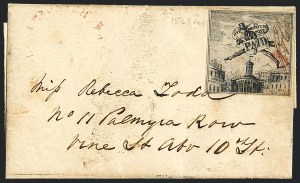 PAID
Miss Rebecca Todd
No 11 Palmyra Row
Vine St Abv 10th St.